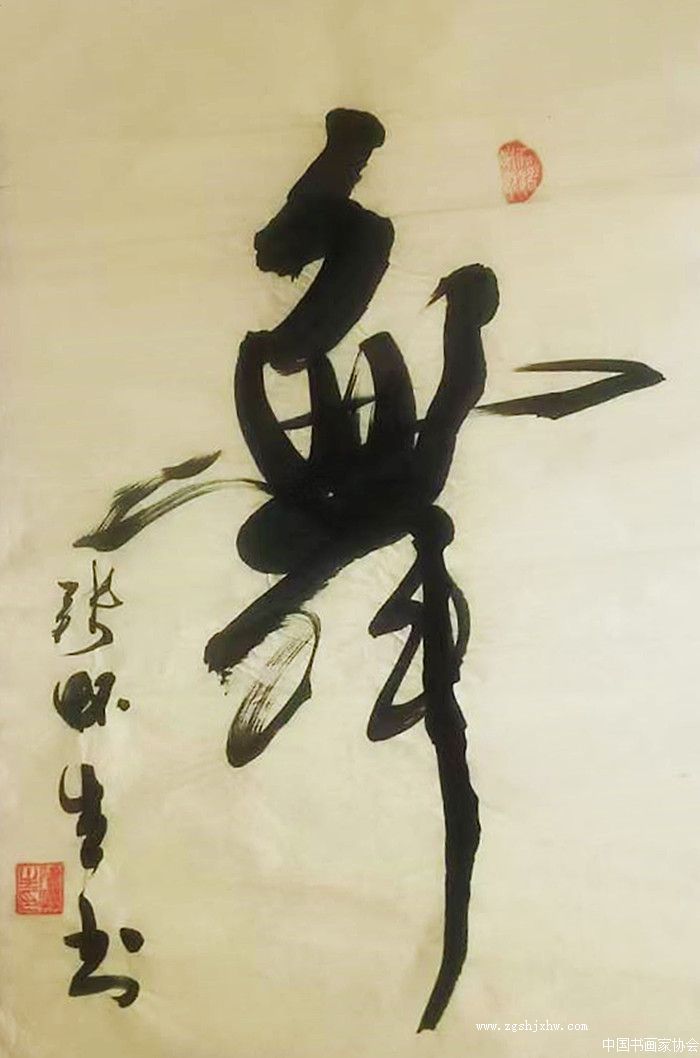 舞
张
生
书
www.zgshjxhw.com
中国书画家协会